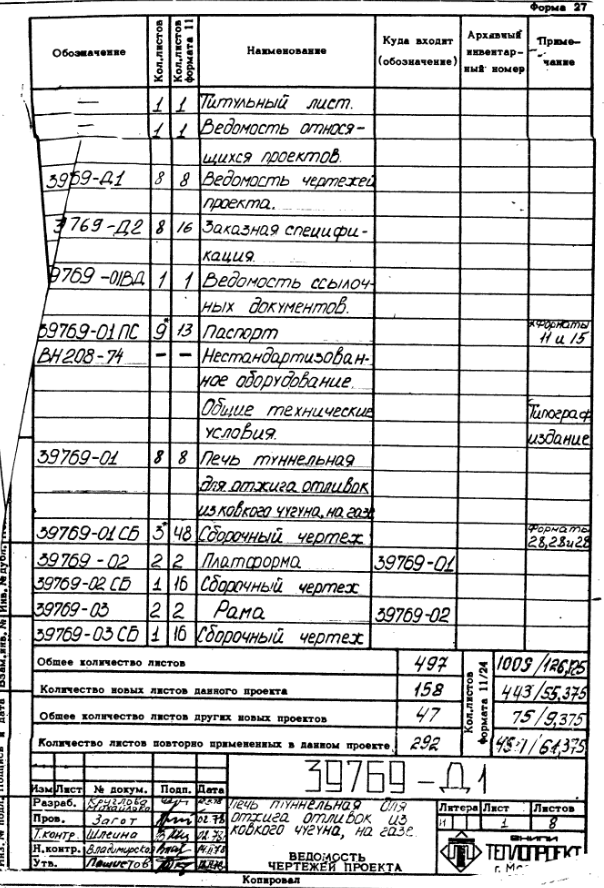 Форма 27
Обозначение Кол.листов Кол.листов формата 11 Наименование Куда входит (обозначение) Архивный инвентарный номер Примечание
— 1 1 Титульный лист.
— 1 1 Ведомость относя-
щихся проектов.
39769-Д1 8 8 Ведомость чертежей
проекта.
39769-Д2 8 16 Заказная специфи-
кация.
39769-01ВД 1 1 Ведомость ссылоч-
ных документов.
39769-01 ПС 9* 13 Паспорт *Форматы 11 и 15
ВН208-74 — — Нестандартизован-
ное оборудование.
Общие технические Типограф
условия. издание
39769-01 8 8 Печь туннельная
для отжига отливок
из ковкого чугуна, на газе
39769-01 СБ 3* 48 Сборочный чертеж Форматы
39769-02 2 2 Платформа 39769-01
39769-02 СБ 1 16 Сборочный чертеж
39769-03 2 2 Рама 39769-02
39769-03 СБ 1 16 Сборочный чертеж
Общее количество листов 497 Кол.листов формата 11/24 1009/126,125
Количество новых листов данного проекта 158 443/55,375
Общее количество листов других новых проектов 47 75/9,375
Количество листов повторно примененных в данном проекте 292 491/61,375
39769-Д1
Изм Лист № докум. Подп. Дата
Разраб. Круглова Михайлова
Пров. Загот 02.78
Т.контр. Шлеина 02.78
Н.контр. Владимирская
Утв.
Печь туннельная для
отжига отливок из
ковкого чугуна, на газе.
ВЕДОМОСТЬ
ЧЕРТЕЖЕЙ ПРОЕКТА
Литера Лист Листов
И 1 8
ВНИПИ
ТЕПЛОПРОЕКТ
Копировал